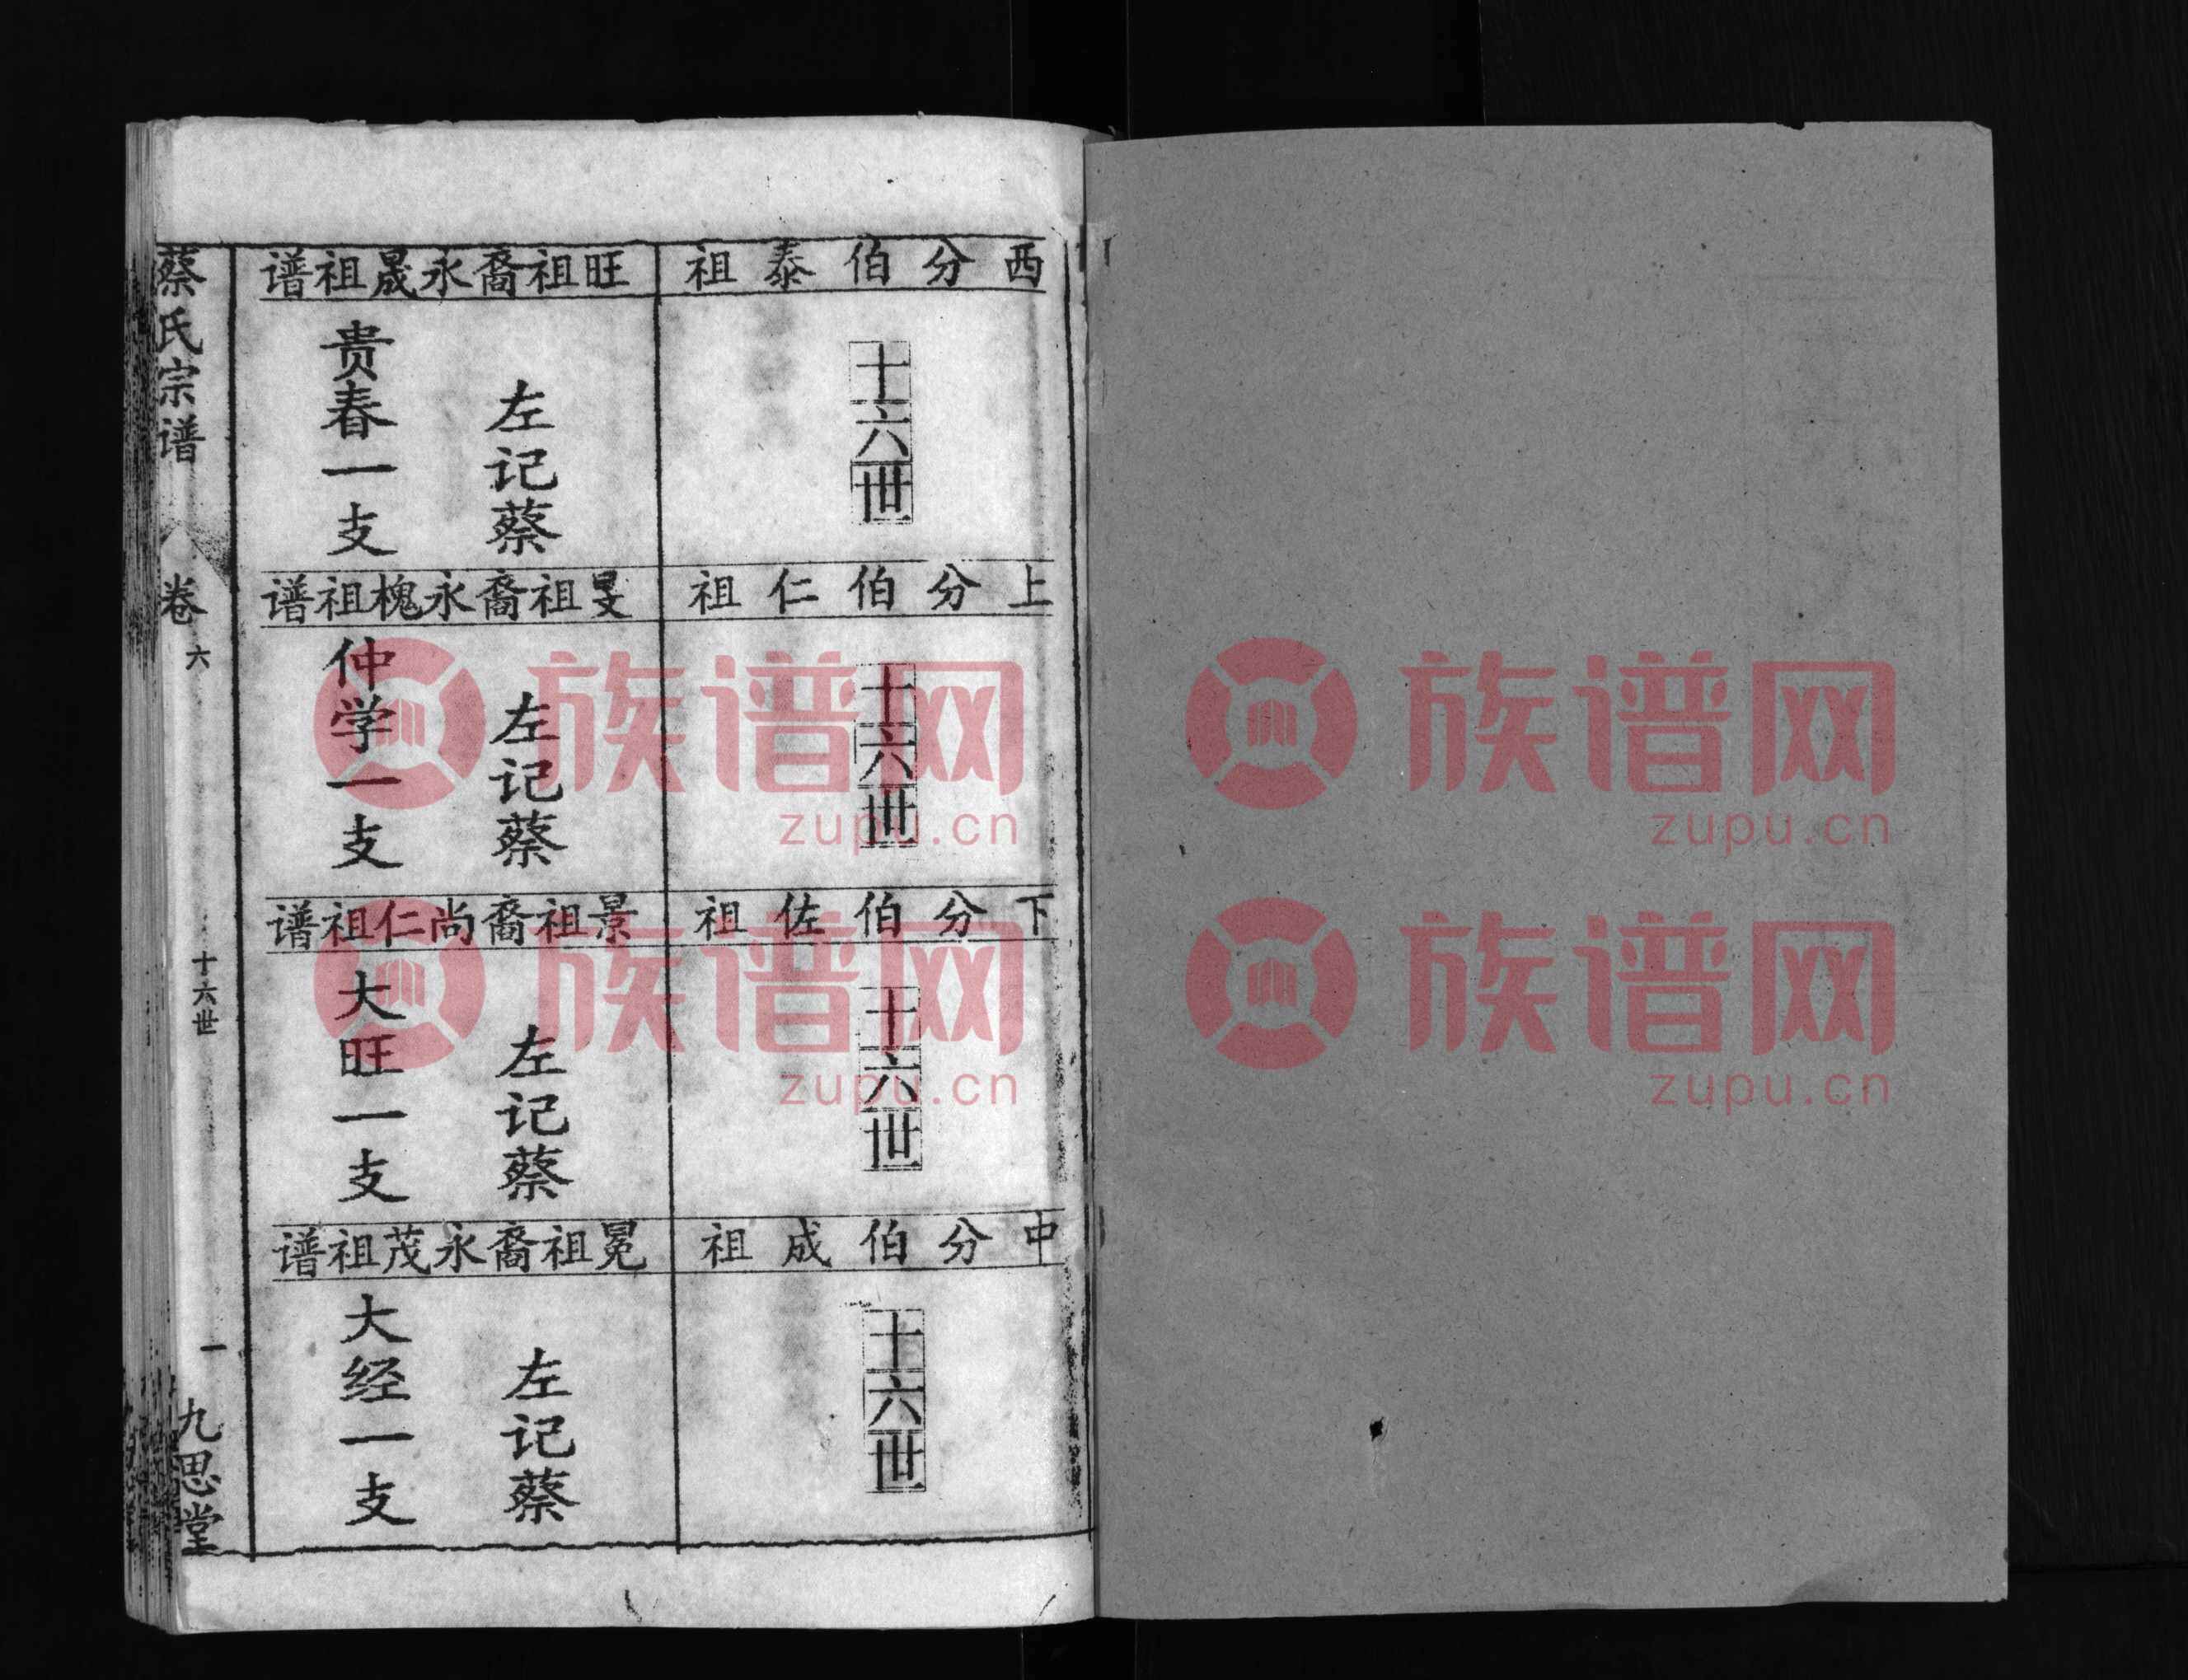 西分伯泰祖
十六世
旺祖裔永晟祖谱
左记蔡
贵春一支
上分伯仁祖
十六世
旻祖裔永槐祖谱
左记蔡
仲学一支
下分伯佐祖
十六世
景祖裔尚仁祖谱
左记蔡
大旺一支
中分伯成祖
十六世
冕祖裔永茂祖谱
左记蔡
大经一支
蔡氏宗谱
卷六
十六世
一
九思堂
族谱网
zupu.cn
族谱网
zupu.cn
族谱网
zupu.cn
族谱网
zupu.cn